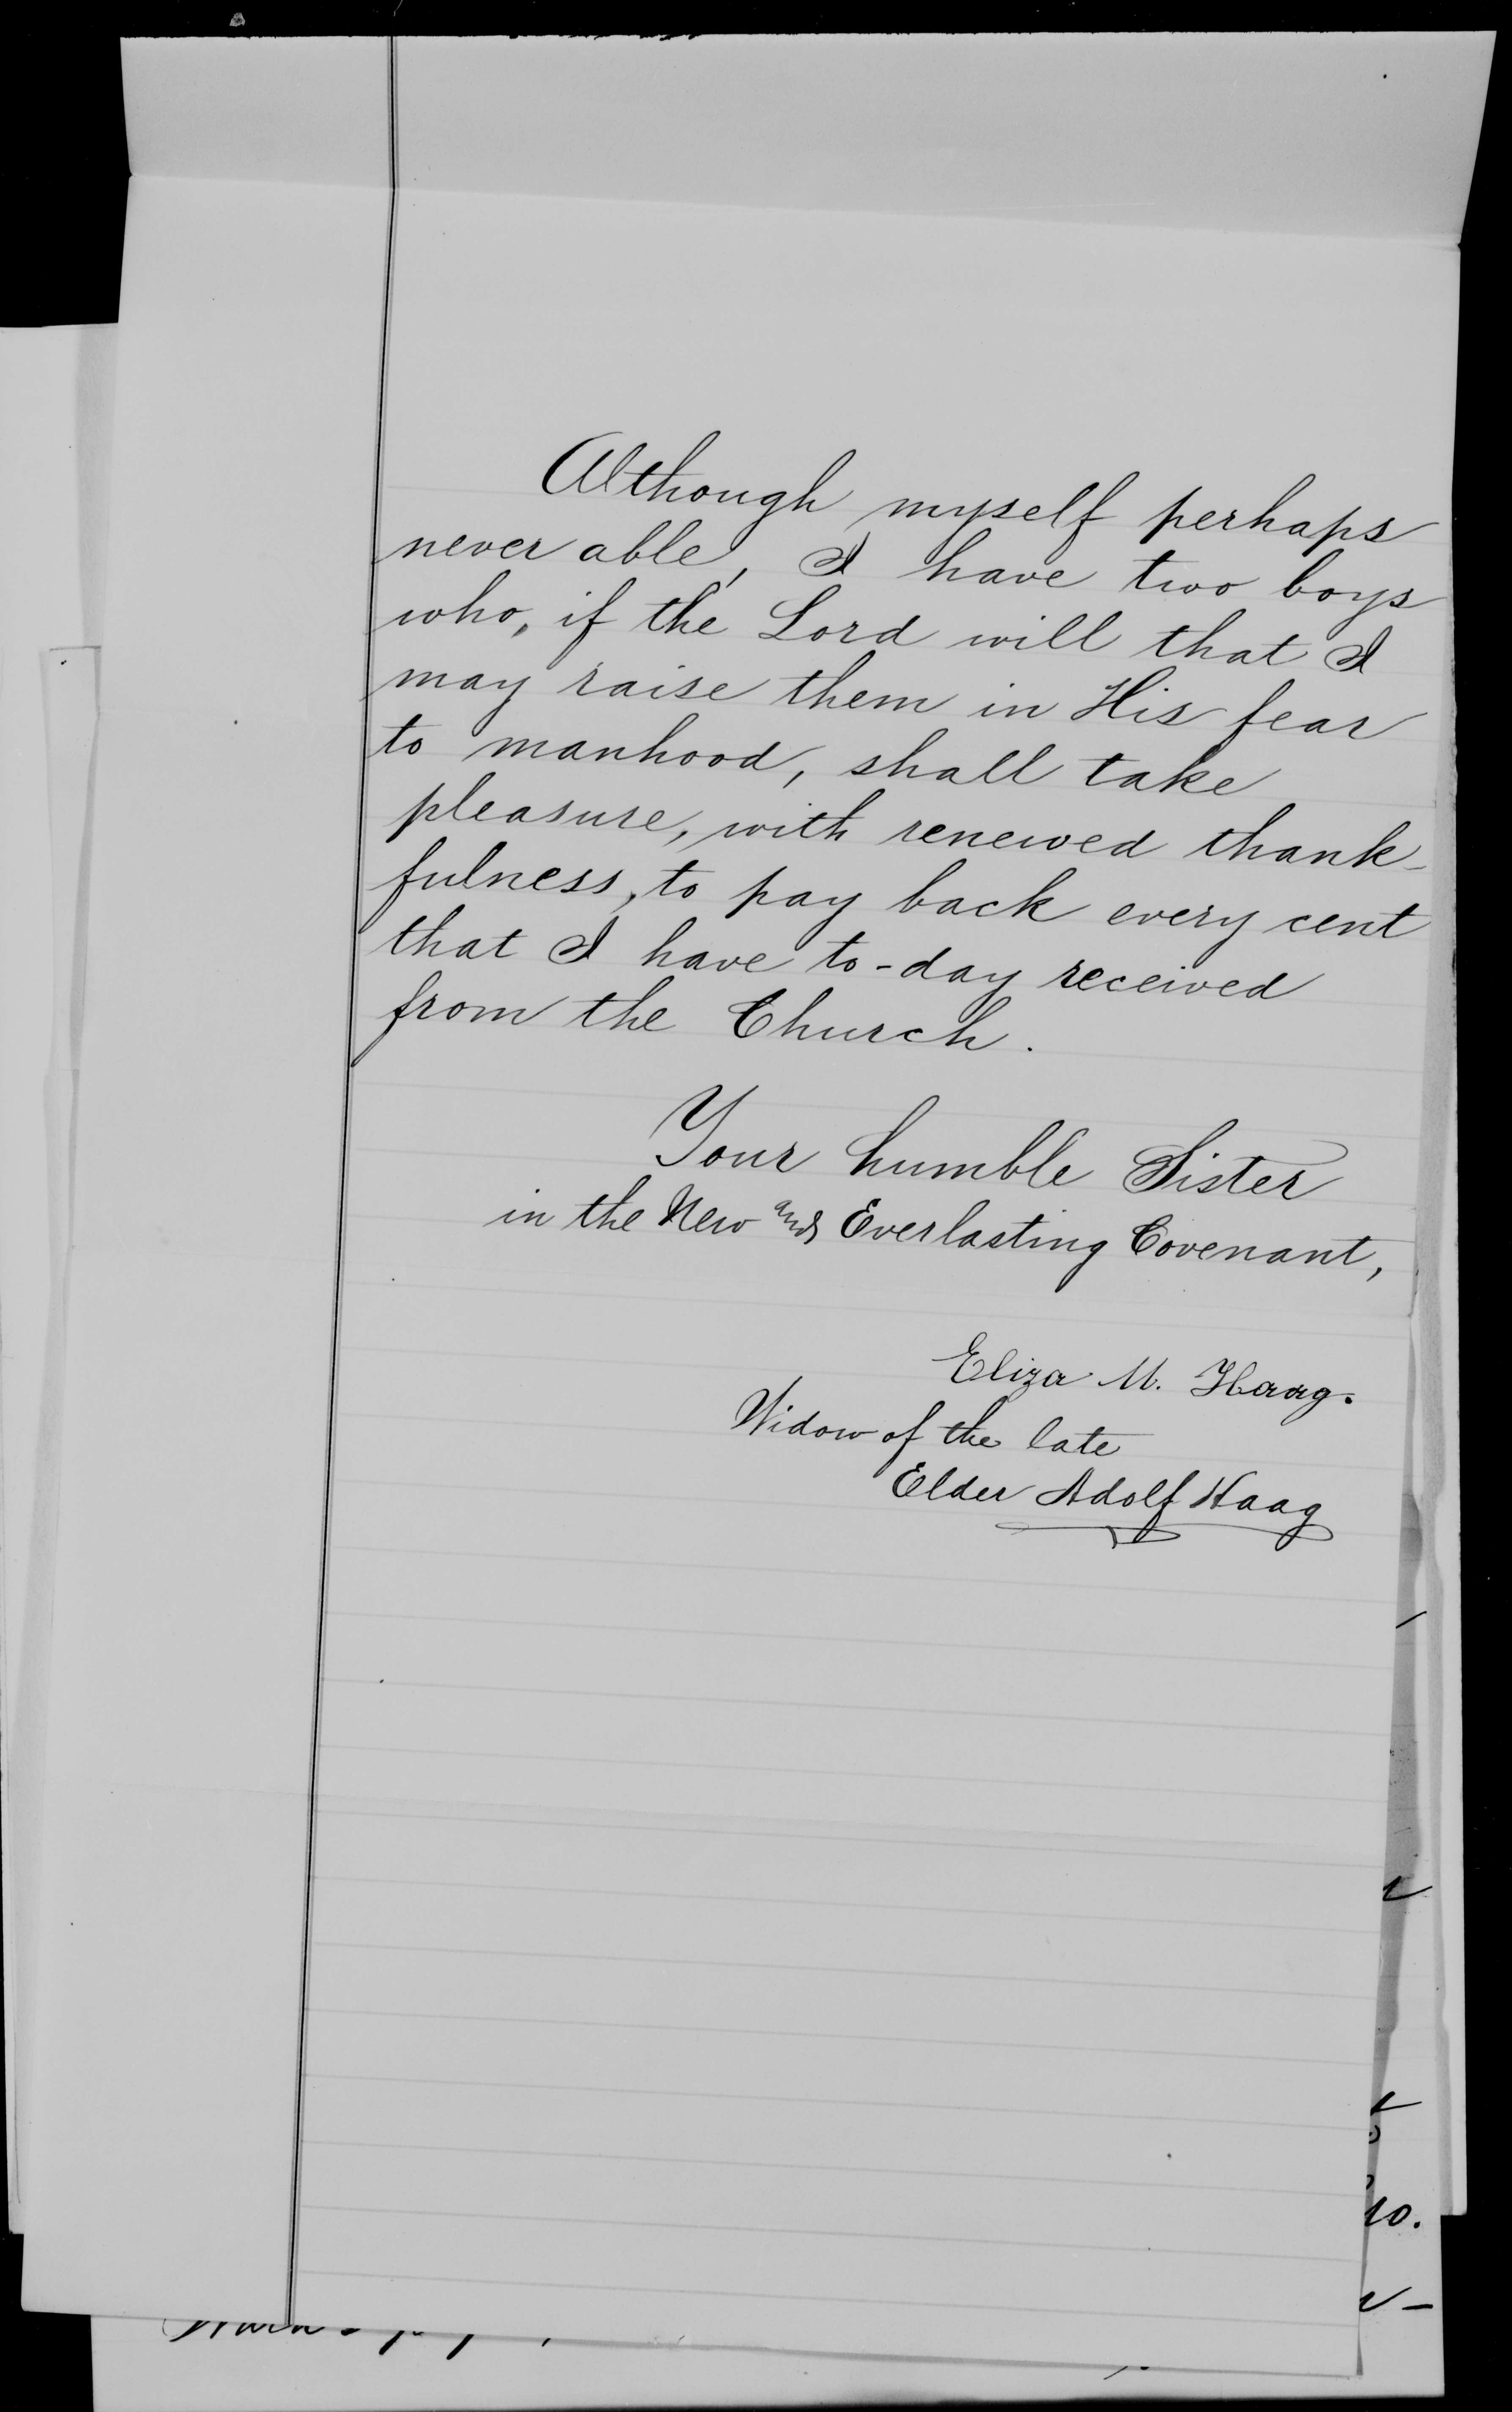 Although myself perhaps
never able, I have two boys
who, if the Lord will that I
may raise them in His fear
to manhood, shall take
pleasure, with renewed thank-
fulness, to pay back every cent
that I have to-day received
from the Church.
Your humble Sister
in the New and Everlasting Covenant,
Eliza M. Haag.
Widow of the late
Elder Adolf Haag
10.